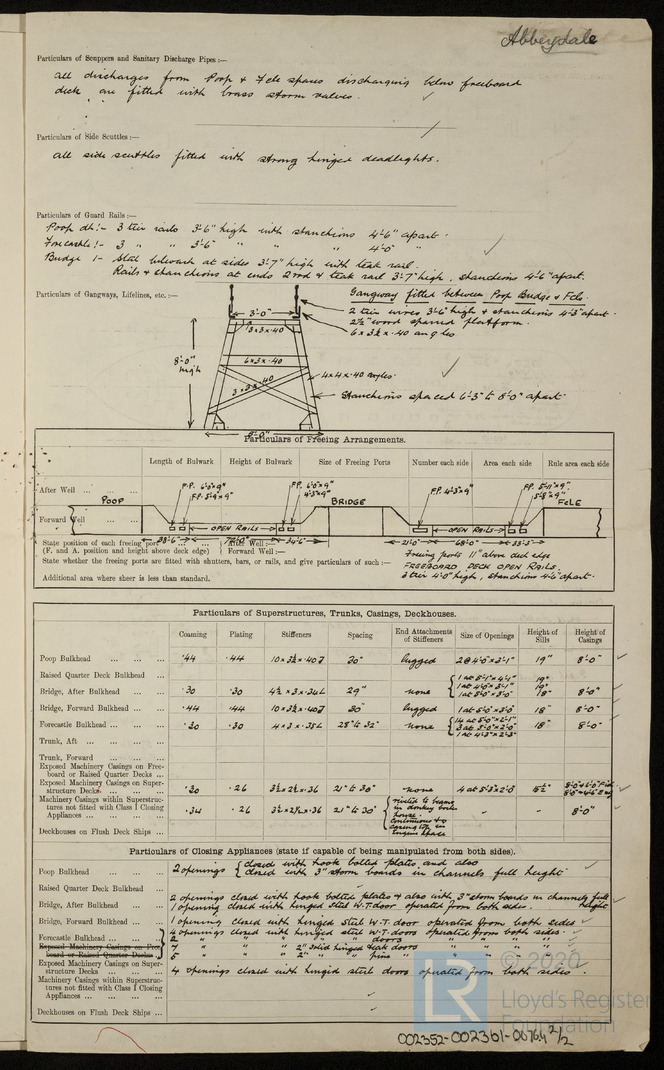 Abbeydale
Particulars of Scuppers and Sanitary Discharge Pipes :—
All discharges from Poop & Fcle spaces discharging below freeboard
deck are fitted with brass storm valves.
Particulars of Side Scuttles :—
All side scuttles fitted with strong hinged deadlights.
Particulars of Guard Rails :—
Poop dk :- 3 tier rails 3'-6" high with stanchions 4'-6" apart.
Forecastle :- 3 " " 3'-6" " " " 4'-0" "
Bridge :- Steel bulwark at sides 3'-7" high with teak rail.
Rails & stanchions at ends 2 rod & teak rail 3'-7" high, stanchions 4'-6" apart.
Particulars of Gangways, Lifelines, etc. :—
Gangway fitted between Poop Bridge & Fcle.
2 tier wires 3'-6" high & stanchions 4'-3" apart.
2½" wood sparred platform.
6 x 3½ x .40 angles
3'-0"
3 x 3 x .40
8'-0" high
6 x 3 x .40
3 x 3 x .40
4 x 4 x .40 angles
Stanchions spaced 6'-3" to 8'-0" apart.
Particulars of Freeing Arrangements.
Length of Bulwark Height of Bulwark Size of Freeing Ports Number each side Area each side Rule area each side
After Well ... ...
POOP
BRIDGE
FCLE
Forward Well
OPEN RAILS
OPEN RAILS
State position of each freeing port ... ... After Well :—
(F. and A. position and height above deck edge) Forward Well :—
21'-0" 68'-0" 33'-3"
Freeing ports 11" above deck edge
State whether the freeing ports are fitted with shutters, bars, or rails, and give particulars of such :—
FREEBOARD DECK OPEN RAILS.
Additional area where sheer is less than standard.
3 tier 4'-0" high, stanchions 4'-6" apart.
Particulars of Superstructures, Trunks, Casings, Deckhouses.
Coaming Plating Stiffeners Spacing End Attachments of Stiffeners Size of Openings Height of Sills Height of Casings
Poop Bulkhead ... ... ... .44 .44 10 x 3½ x .40 30" lugged 2 @ 4'-0" x 3'-1" 19" 8'-0"
Raised Quarter Deck Bulkhead
Bridge, After Bulkhead ... .30 .30 4½ x 3 x .34 29" none 18" 8'-0"
Bridge, Forward Bulkhead ... .44 .44 10 x 3½ x .40 30" lugged 1 at 5'-0" x 3'-0" 18" 8'-0"
Forecastle Bulkhead ... ... .30 .30 4 x 3 x .35 28" to 32" none 18" 8'-0"
Trunk, Aft ... ... ... ...
Trunk, Forward ... ... ...
Exposed Machinery Casings on Freeboard or Raised Quarter Decks ...
Exposed Machinery Casings on Superstructure Decks ... ... .30 .26 3½ x 2½ x .36 21" to 30" none 4 at 5'-3" x 2'-0" 15½"
Machinery Casings within Superstructures not fitted with Class I Closing Appliances ... ... ... .34 .26 3½ x 2½ x .36 21" to 30" riveted to beams in donkey boiler house. - - 8'-0"
Deckhouses on Flush Deck Ships ...
Particulars of Closing Appliances (state if capable of being manipulated from both sides).
Poop Bulkhead ... ... ... 2 openings closed with hook bolted plates, and also
closed with 3" storm boards in channels full height
Raised Quarter Deck Bulkhead
2 openings closed with hook bolted plates & also with 3" storm boards in channels full height
Bridge, After Bulkhead ... 1 opening closed with hinged Steel W.T. door operated from both sides.
Bridge, Forward Bulkhead ... 1 opening closed with hinged Steel W.T. door operated from both sides
Forecastle Bulkhead ... ... 4 openings closed with hinged Steel W.T. doors operated from both sides.
2 " " " " " doors " " " "
Exposed Machinery Casings on Freeboard or Raised Quarter Decks 7 " " " 2" solid hinged teak doors " " " "
5 " " " 2" " " " " " " "
Exposed Machinery Casings on Superstructure Decks ... ... ... 4 openings closed with hinged steel doors operated from both sides
Machinery Casings within Superstructures not fitted with Class I Closing Appliances ... ... ...
Deckhouses on Flush Deck Ships ...
© 2020
Lloyd's Register
Foundation
LR
002352-002361-0076 2/2